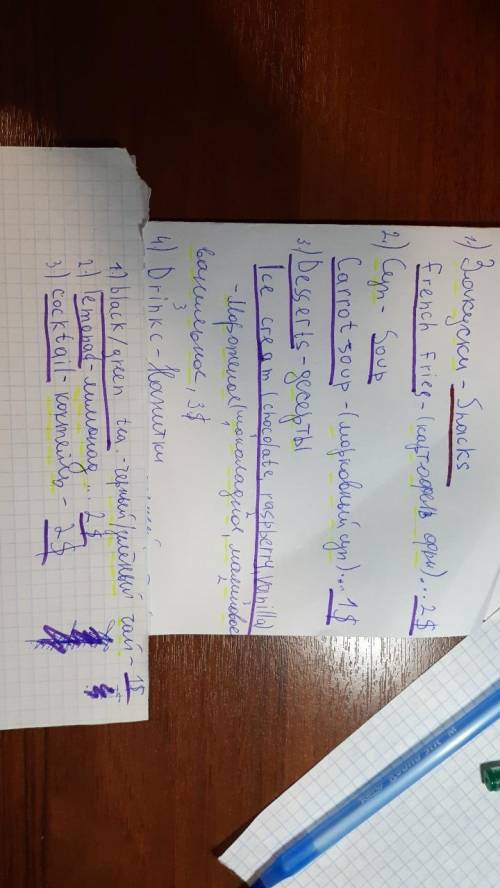 1) Закуски - Snacks
french fries - (картофель фри)... 2$
2) Суп - Soup
Carrot soup - (морковный суп)... 1$
3) Desserts - десерты
Ice cream (chocolate, raspberry, vanilla)
1 2 3
- Мороженое (шоколадное, малиновое
1 2
ванильное, 3$
3
4) Drinkc - Напитки
1) black/green tea - черный/зелёный чай - 1$
2) lemonad - лимонад... 2$
3) cocktail - коктейль - 2$